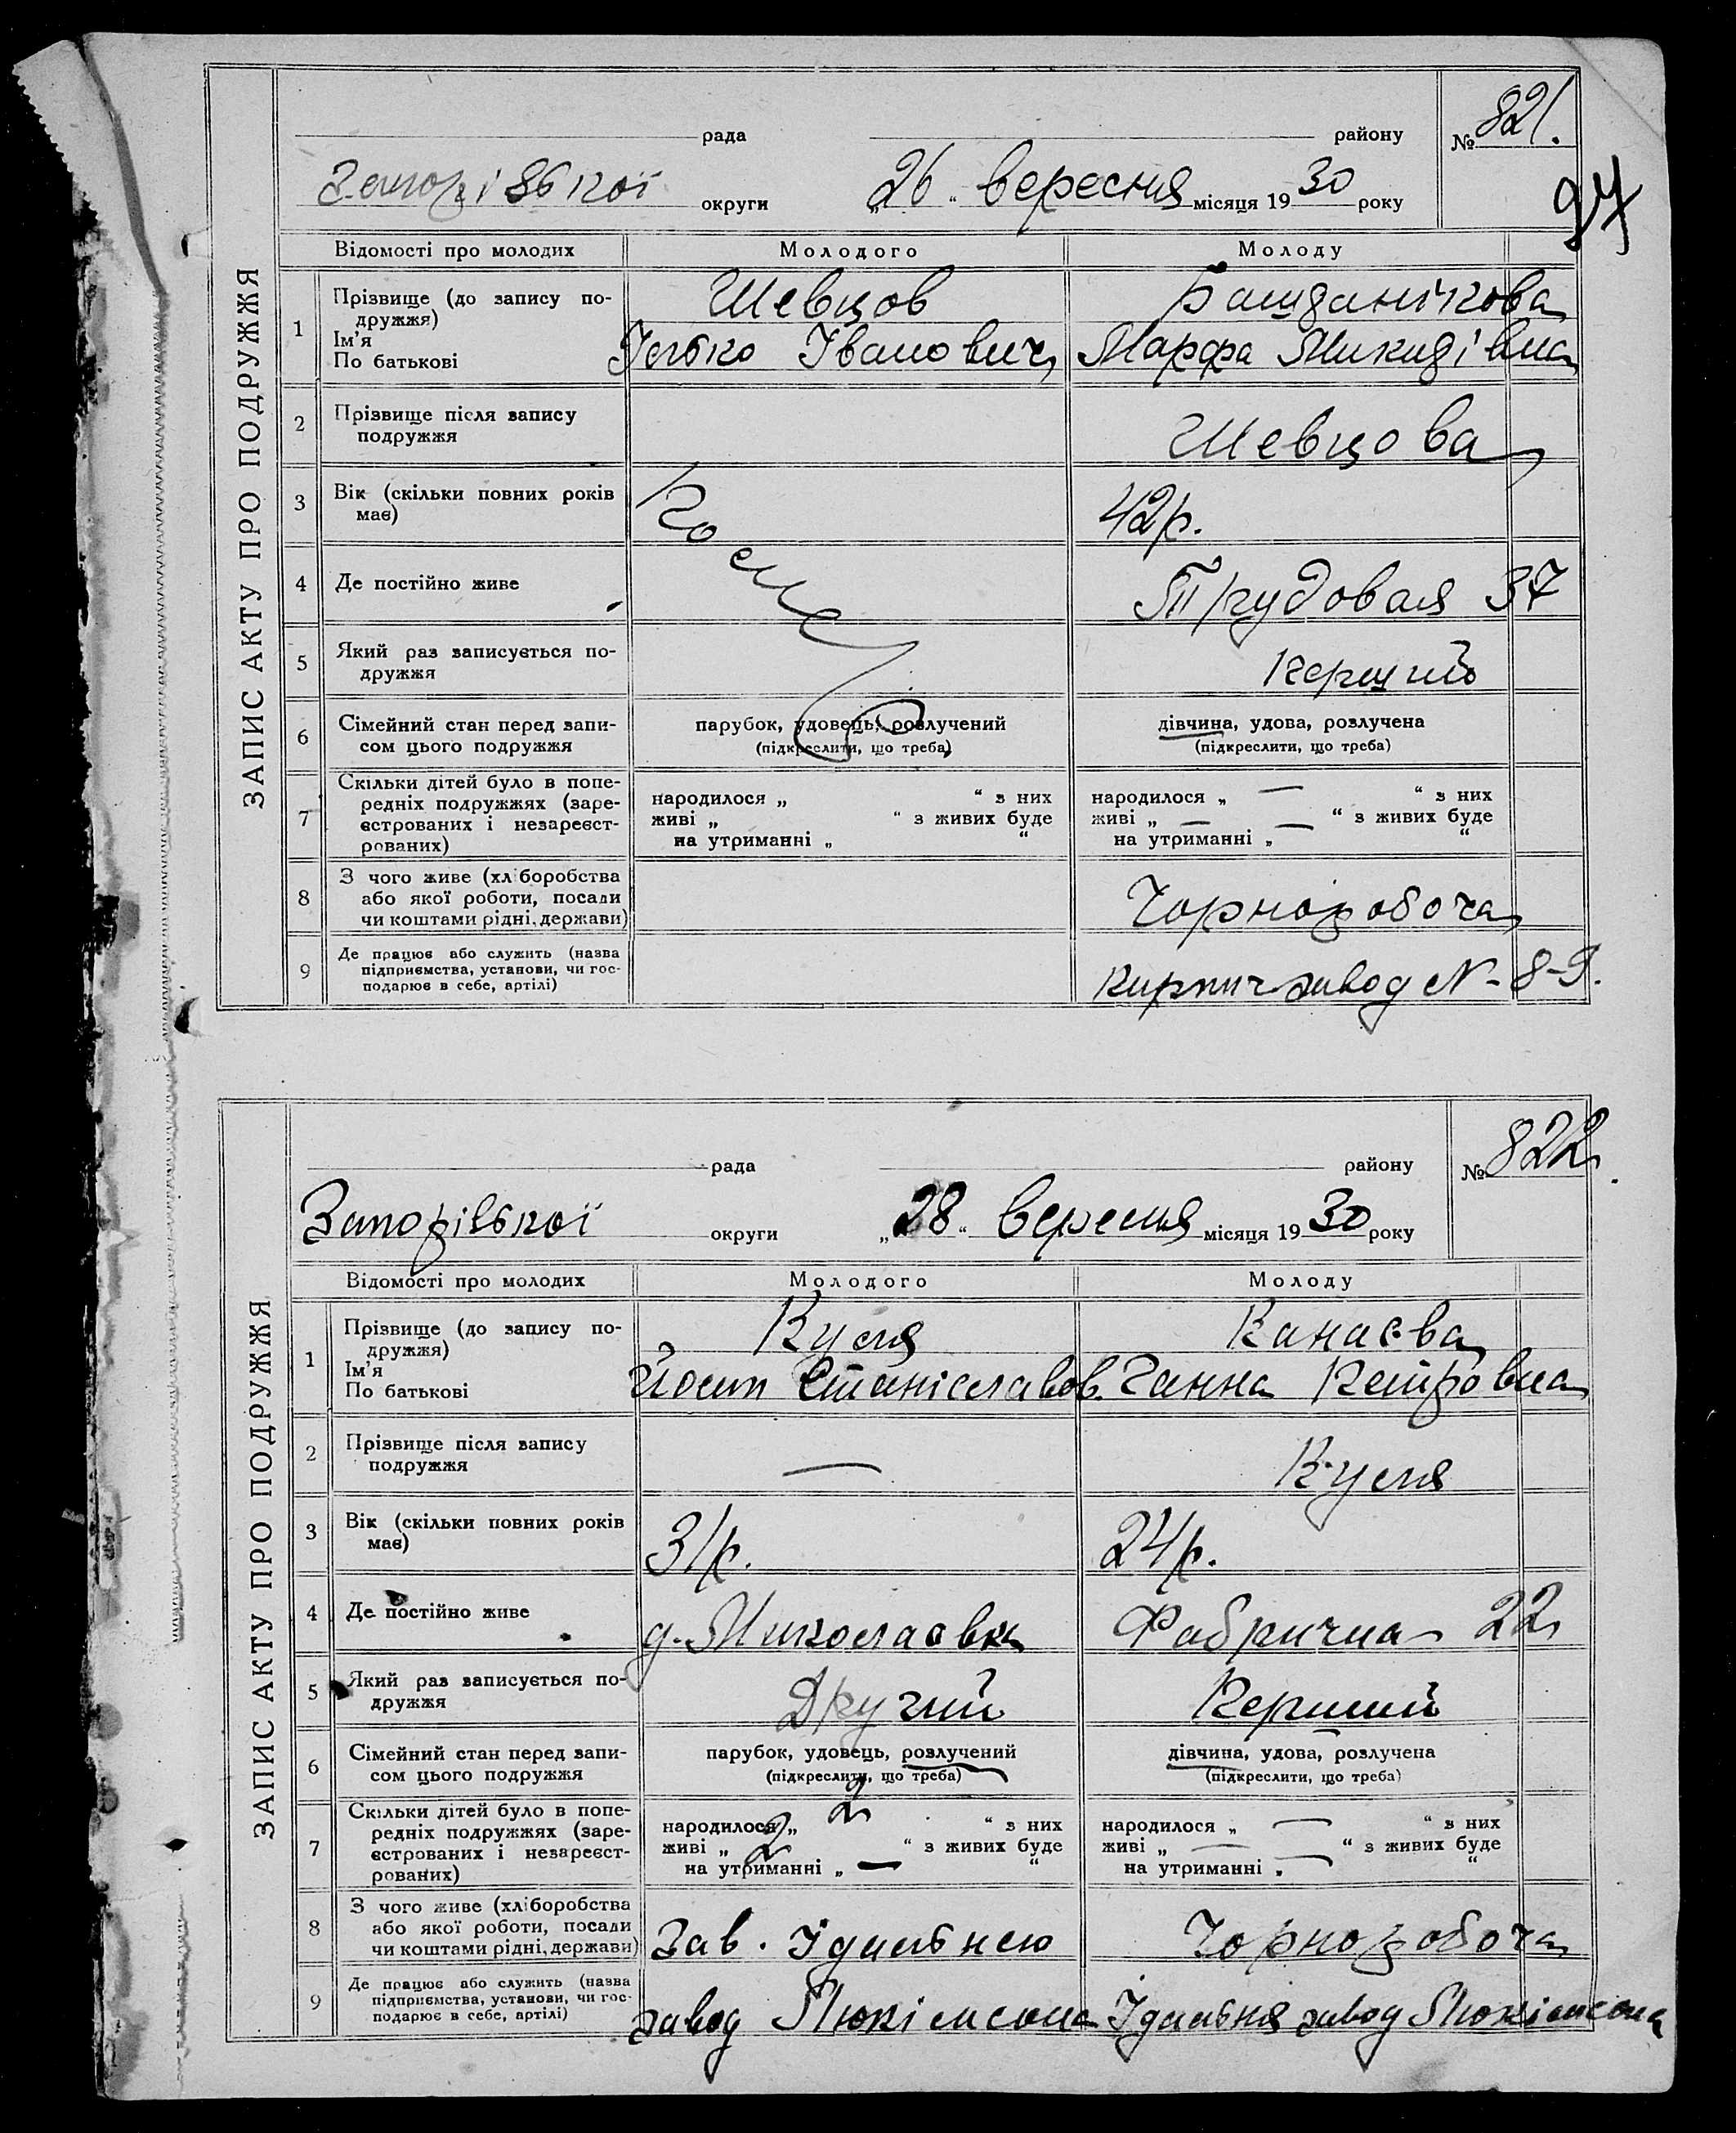 ЗАПИС АКТУ ПРО ПОДРУЖЖЯ
рада району № 821.
97
округи „26“ вересня місяця 1930 року
Відомості про молодих Молодого Молоду
1 Прізвище (до запису по-
дружжя)
Ім’я
По батькові
Шевцов
Ілько Іванович
Марфа Микидівна
2 Прізвище після запису
подружжя
Шевцова
3 Вік (скільки повних років
має)
42 р.
4 Де постійно живе
Трудовая 37
5 Який раз записується по-
дружжя
Перший
6 Сімейний стан перед запи-
сом цього подружжя
парубок, удовець, розлучений
(підкреслити, що треба)
дівчина, удова, розлучена
(підкреслити, що треба)
7 Скільки дітей було в попе-
редніх подружжях (заре-
єстрованих і незареєст-
рованих)
народилося „ “ з них
живі „ “ з живих буде
на утриманні „ “
народилося „ — “ з них
живі „ — “ з живих буде
на утриманні „ — “
8 З чого живе (хліборобства
або якої роботи, посади
чи коштами рідні, держави)
Чорноробоча
9 Де працює або служить (назва
підприємства, установи, чи гос-
подарює в себе, артілі)
кирпич завод N-8-9.
ЗАПИС АКТУ ПРО ПОДРУЖЖЯ
рада району № 822.
Запорізької округи „28“ вересня місяця 1930 року
Відомості про молодих Молодого Молоду
1 Прізвище (до запису по-
дружжя)
Ім’я
По батькові
Канаєва
Йосип Станіславов. Ганна Петровна
2 Прізвище після запису
подружжя
—
3 Вік (скільки повних років
має)
31 р. 24 р.
4 Де постійно живе
д. Миколаєвка Фабрична 22
5 Який раз записується по-
дружжя
Другий Перший
6 Сімейний стан перед запи-
сом цього подружжя
парубок, удовець, розлучений
(підкреслити, що треба)
дівчина, удова, розлучена
(підкреслити, що треба)
7 Скільки дітей було в попе-
редніх подружжях (заре-
єстрованих і незареєст-
рованих)
народилося „ 2 “ з них
живі „ 2 “ з живих буде
на утриманні „ — “
народилося „ — “ з них
живі „ — “ з живих буде
на утриманні „ — “
8 З чого живе (хліборобства
або якої роботи, посади
чи коштами рідні, держави)
Зав. Їдальнею Чорноробоча
9 Де працює або служить (назва
підприємства, установи, чи гос-
подарює в себе, артілі)
завод Їдальня завод